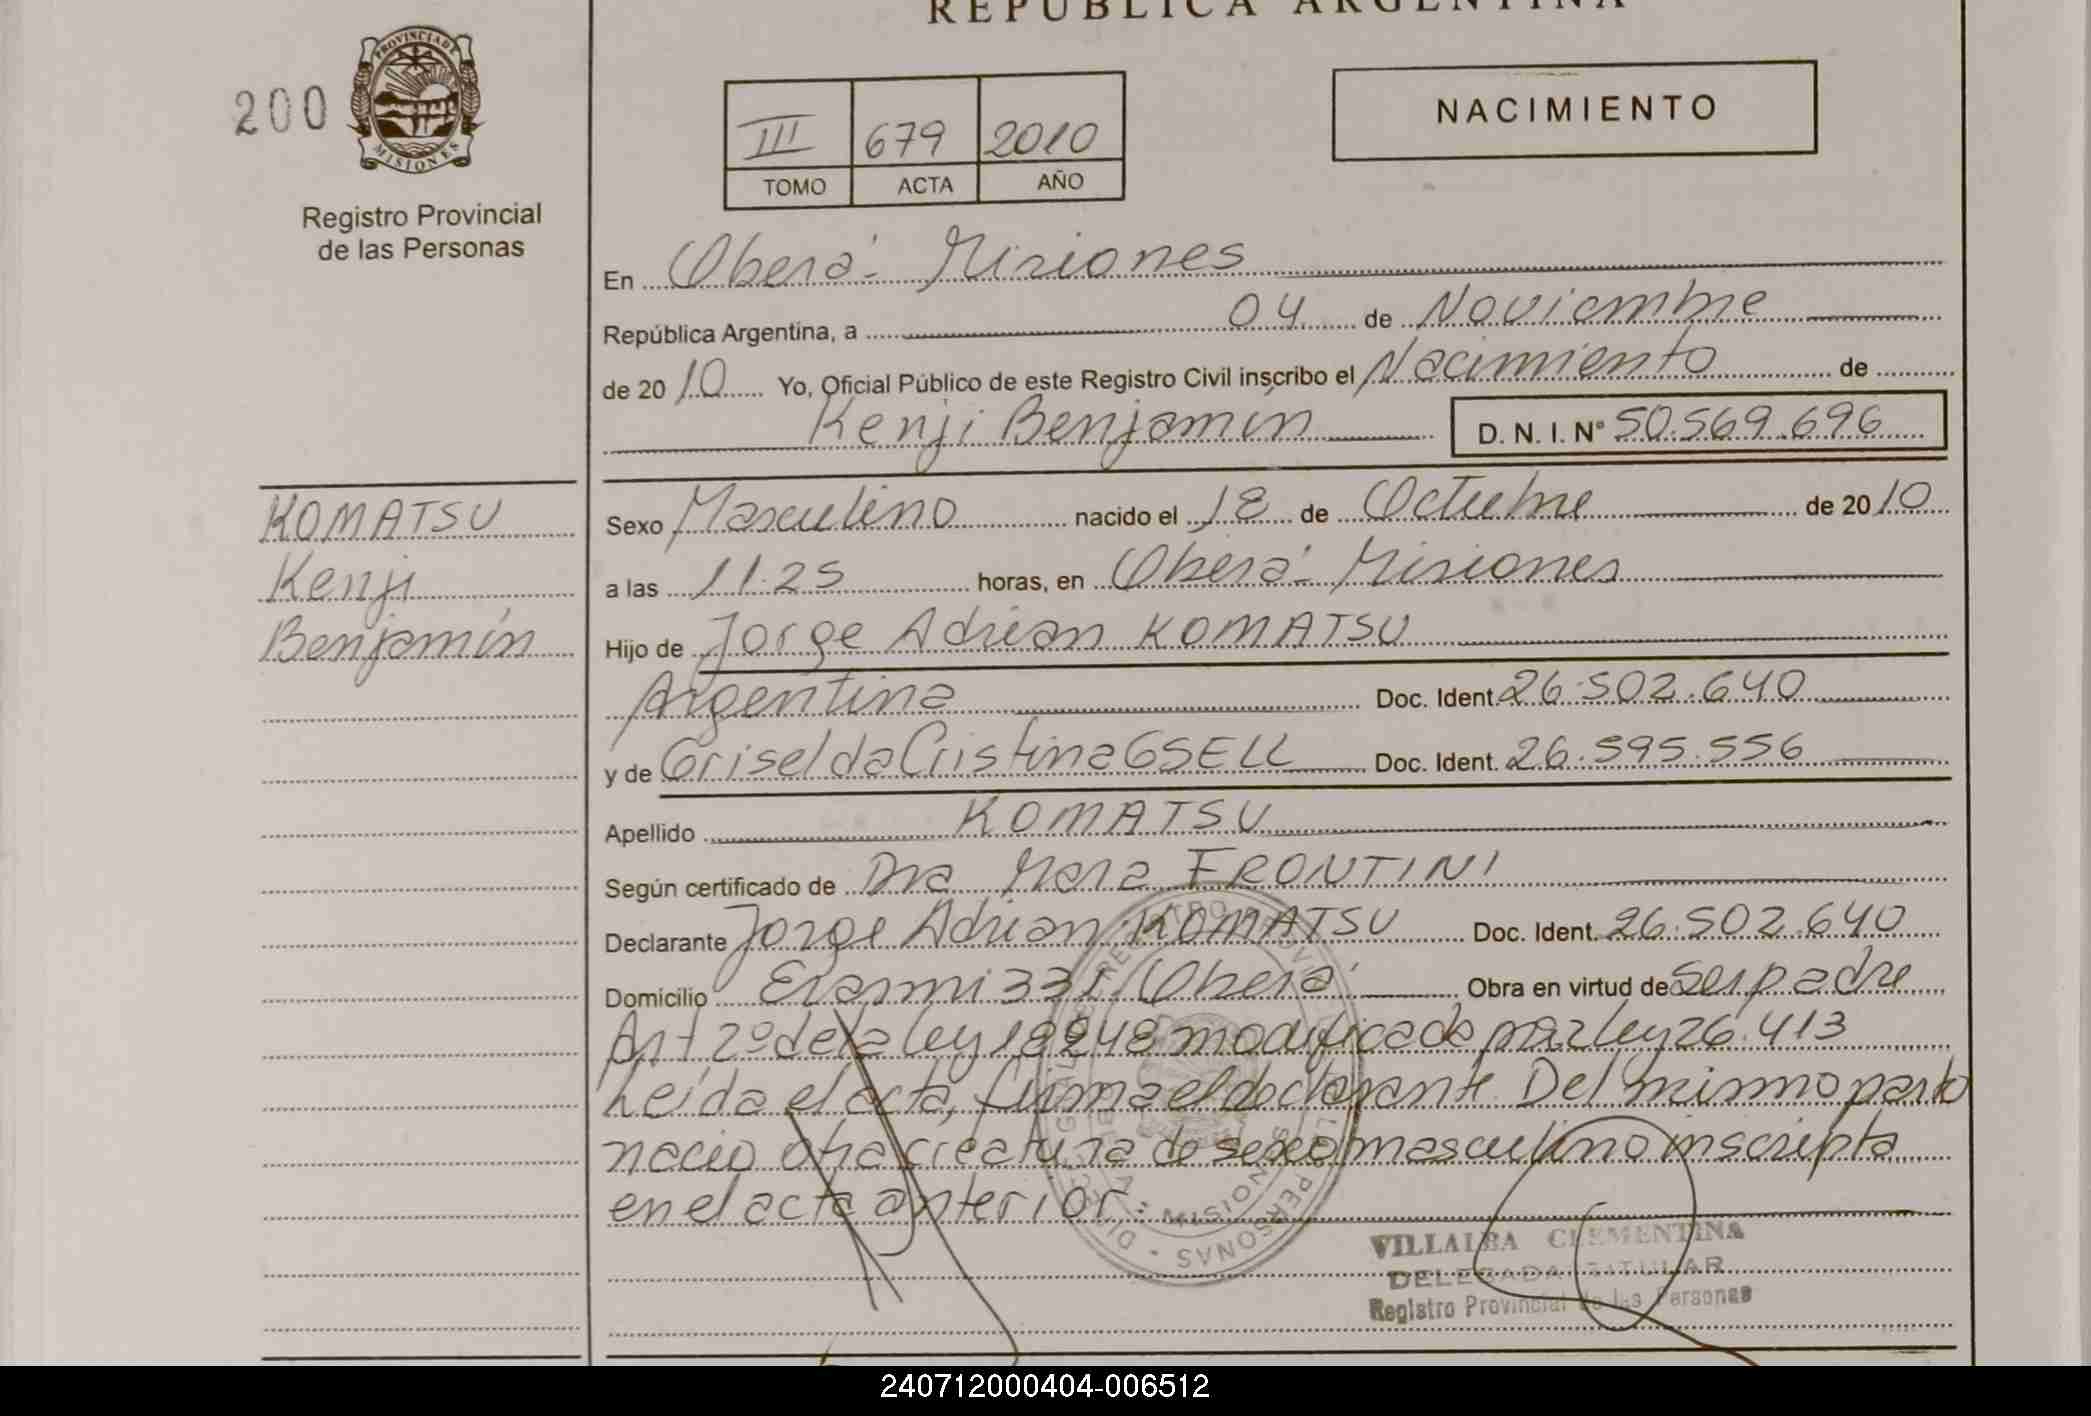 REPUBLICA ARGENTINA
200
PROVINCIA DE
MISIONES
Registro Provincial
de las Personas
III 679 2010
TOMO ACTA AÑO
NACIMIENTO
En Oberá - Misiones
República Argentina, a 04 de Noviembre
de 2010 Yo, Oficial Público de este Registro Civil inscribo el Nacimiento de
Kenji Benjamín D. N. I. Nº 50.569.696
KOMATSU
Kenji
Benjamín
Sexo Masculino nacido el 18 de Octubre de 2010
a las 11.25 horas, en Oberá - Misiones
Hijo de Jorge Adrian KOMATSU
Argentina Doc. Ident. 26.502.640
y de Griselda Cristina GSELL Doc. Ident. 26.595.556
Apellido KOMATSU
Según certificado de Dra Mara FRONTINI
Declarante Jorge Adrian KOMATSU Doc. Ident. 26.502.640
Domicilio 331 Oberá Obra en virtud de Ser padre
Art 2º de la ley 18248 modificada por ley 26.413
Leída el acta, firma el declarante. Del mismo parto
nacio otra creatura de sexo masculino inscripta
en el acta anterior.
VILLALBA CLEMENTINA
DELEGADA TITULAR
Registro Provincial de las Personas
240712000404-006512